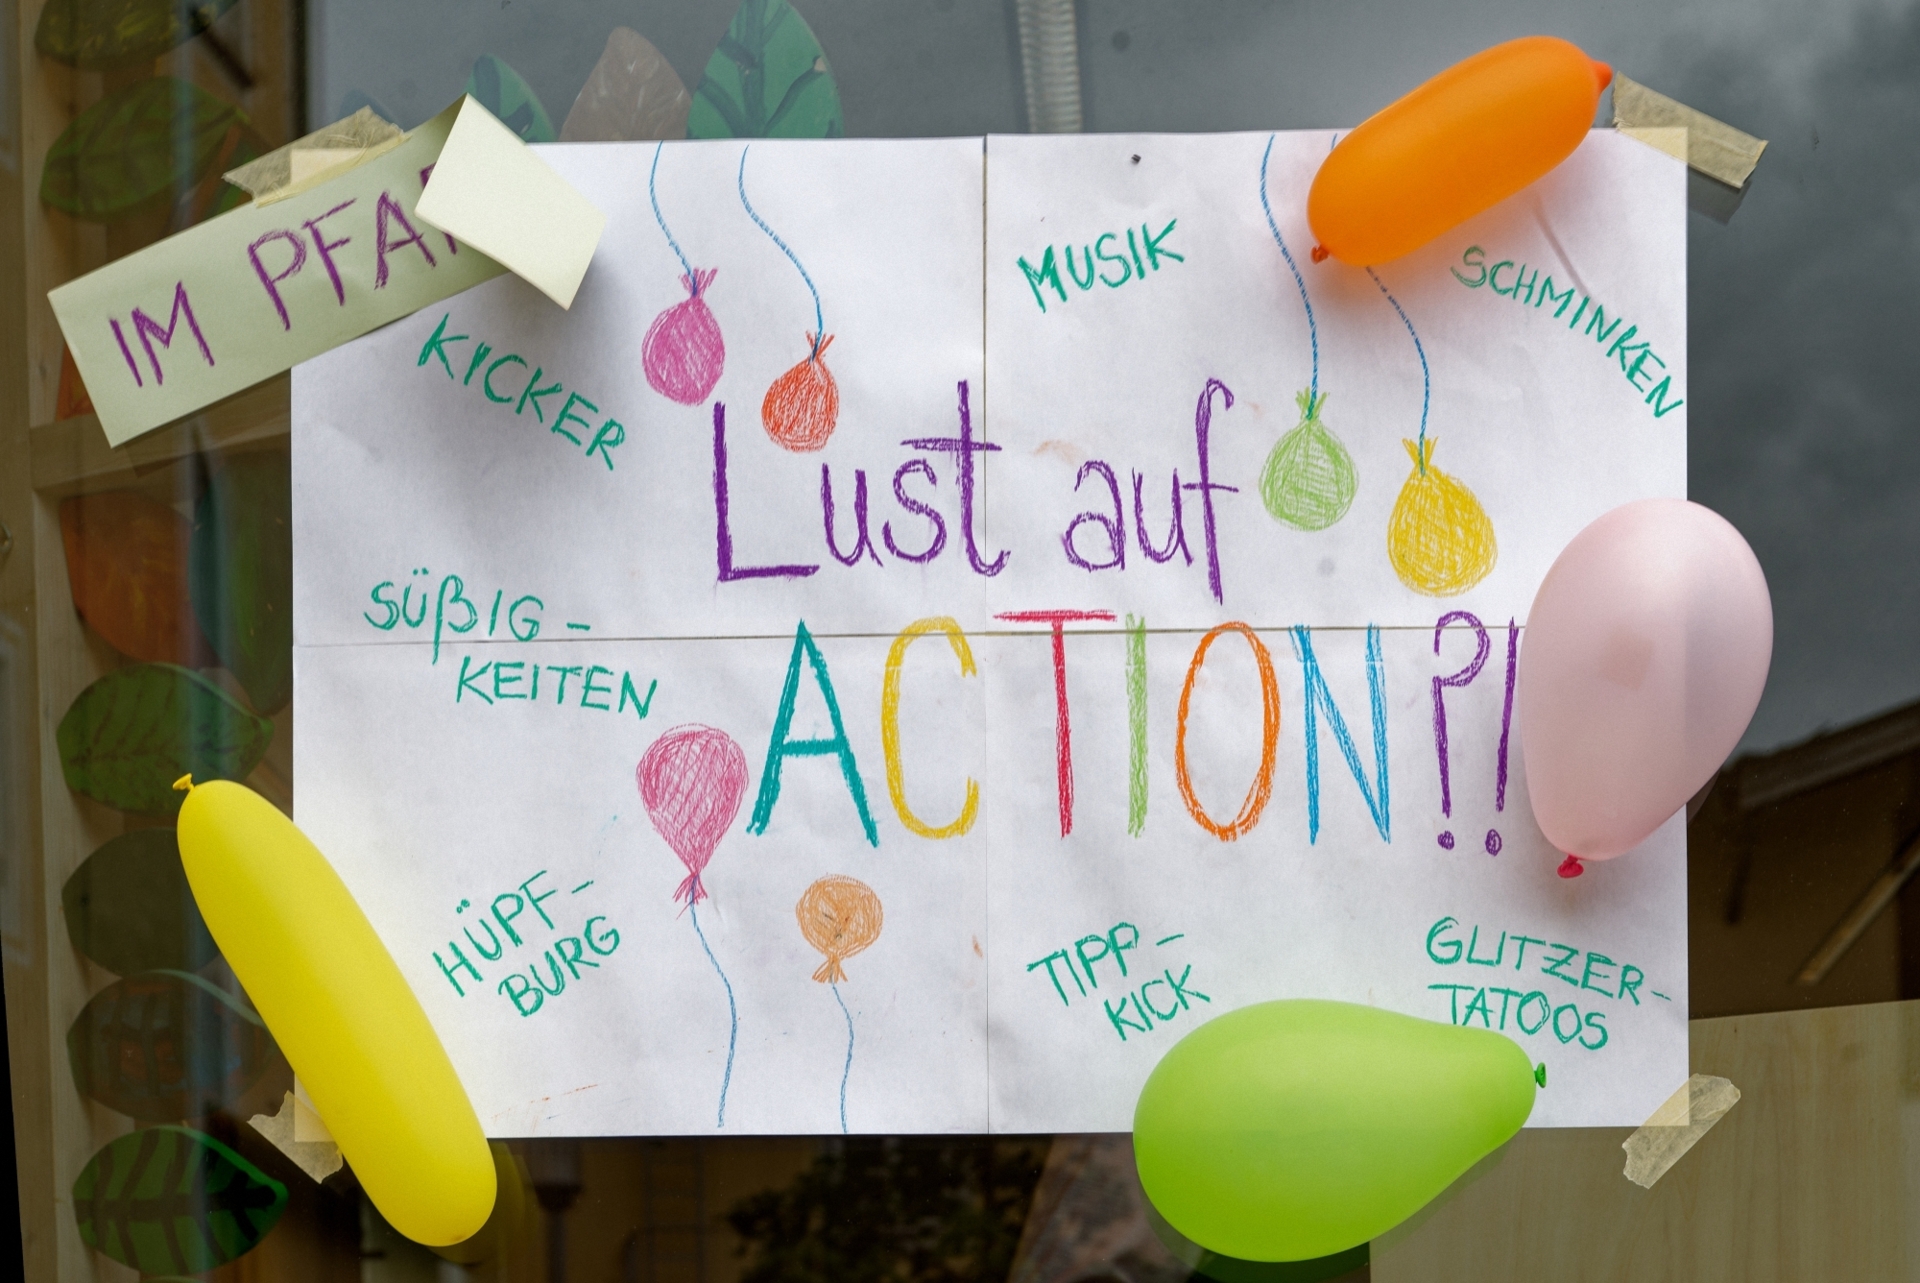 IM
KICKER
MUSIK
SCHMINKEN
Lust auf
ACTION?!
SÜßIG-
KEITEN
HÜPF-
BURG
TIPP-
KICK
GLITZER-
TATOOS